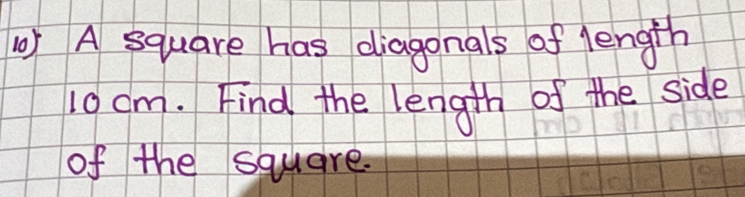 10) A square has diagonals of length
10 cm. Find the length of the side
of the square.